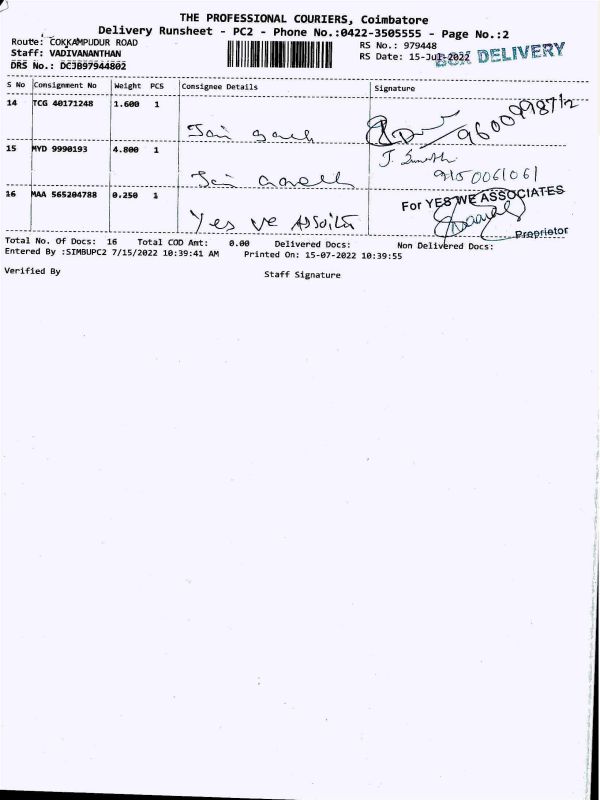 THE PROFESSIONAL COURIERS, Coimbatore
Delivery Runsheet - PC2 - Phone No.:0422-3505555 - Page No.:2
Route: COKKAMPUDUR ROAD
Staff: VADIVANANTHAN
DRS No.: DCJ897944802
RS No.: 979448
RS Date: 15-Jul-2022
BOX DELIVERY
S No Consignment No Weight PCS Consignee Details Signature
14 TCG 40171248 1.600 1
9600998712
15 MYD 9990193 4.800 1
9150061061
16 MAA 565204788 0.250 1 Yes we
For YES WE ASSOCIATES
Proprietor
Total No. Of Docs: 16 Total COD Amt: 0.00 Delivered Docs: Non Delivered Docs:
Entered By :SIMBUPC2 7/15/2022 10:39:41 AM Printed On: 15-07-2022 10:39:55
Verified By Staff Signature